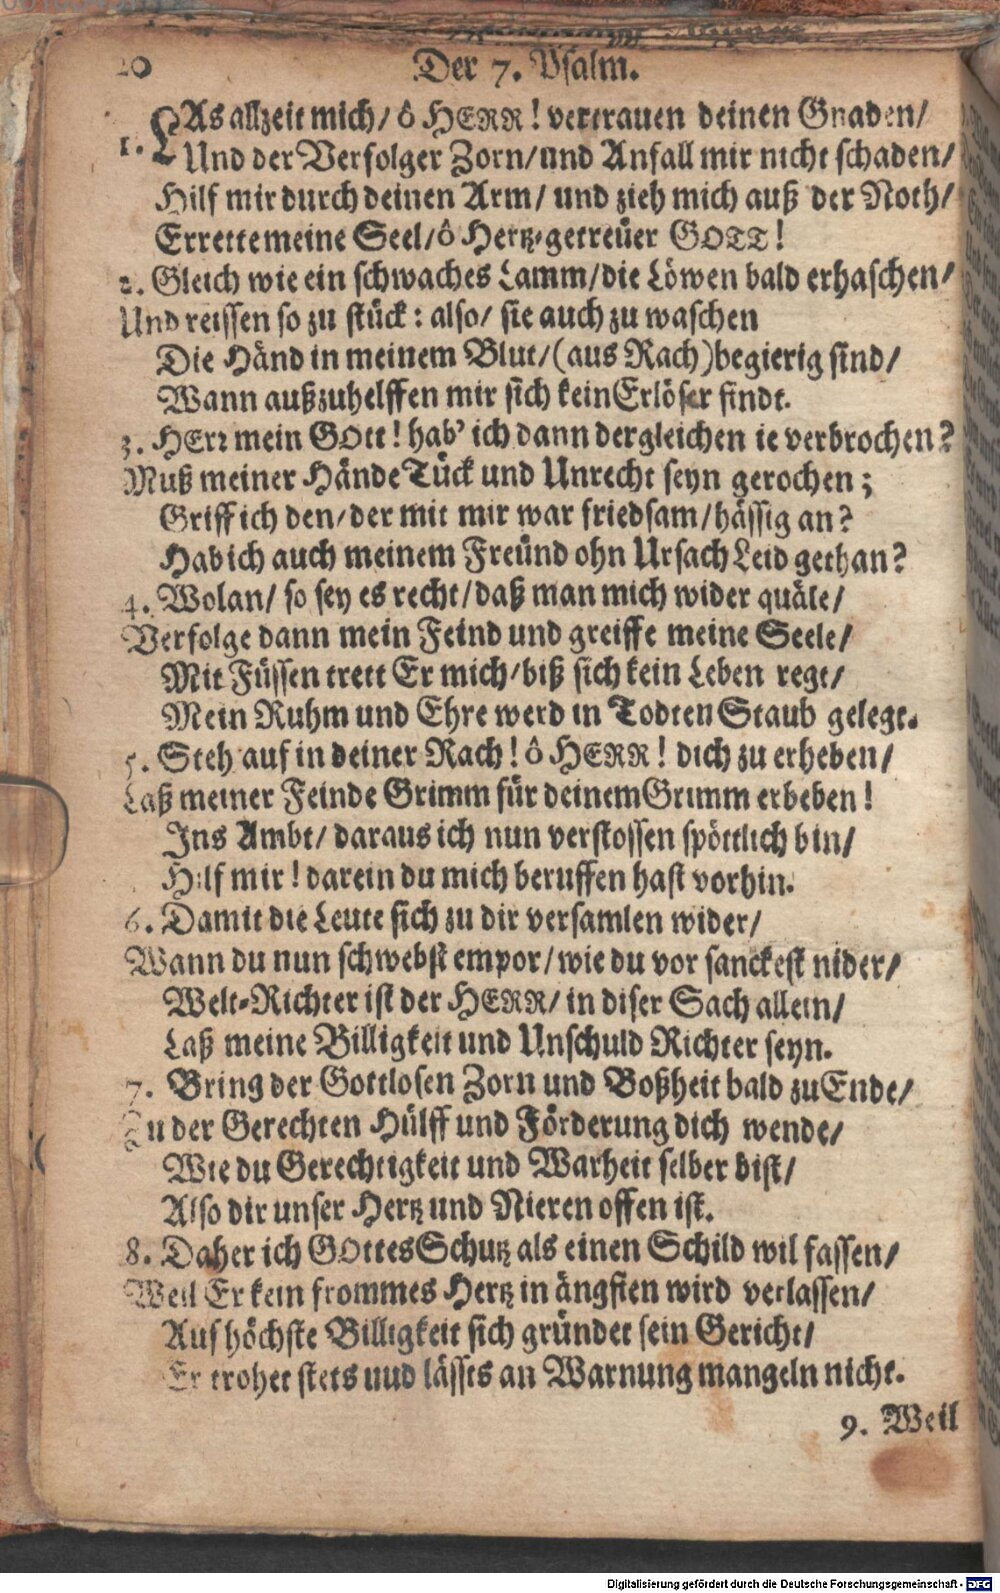 20 Der 7. Psalm.
1. LAs allzeit mich/ ô HERR! vertrauen deinen Gnaden/
Und der Verfolger Zorn/und Anfall mir nicht schaden/
Hilf mir durch deinen Arm/ und zieh mich auß der Noth/
Errette meine Seel/ô Hertz-getreüer GOTT!
2. Gleich wie ein schwaches Lamm/die Löwen bald erhaschen/
Und reissen so zu stück: also/ sie auch zu waschen
Die Händ in meinem Blut/(aus Rach)begierig sind/
Wann außzuhelffen mir sich kein Erlöser findt.
3. HErr mein GOtt! hab' ich dann dergleichen ie verbrochen?
Muß meiner Hände Tück und Unrecht seyn gerochen;
Griff ich den/der mit mir war friedsam/hässig an?
Hab ich auch meinem Freünd ohn Ursach Leid gethan?
4. Wolan/ so sey es recht/daß man mich wider quäle/
Verfolge dann mein Feind und greiffe meine Seele/
Mit Füssen trett Er mich/biß sich kein Leben regt/
Mein Ruhm und Ehre werd in Todten Staub gelegt.
5. Steh auf in deiner Rach! ô HERR! dich zu erheben/
Laß meiner Feinde Grimm für deinem Grimm erbeben!
Ins Ambt/ daraus ich nun verstossen spöttlich bin/
Hilf mir! darein du mich beruffen hast vorhin.
6. Damit die Leute sich zu dir versamlen wider/
Wann du nun schwebst empor/wie du vor sanckest nider/
Welt-Richter ist der HERR/ in diser Sach allein/
Laß meine Billigkeit und Unschuld Richter seyn.
7. Bring der Gottlosen Zorn und Boßheit bald zu Ende/
Zu der Gerechten Hülff und Förderung dich wende/
Wie du Gerechtigkeit und Warheit selber bist/
Also dir unser Hertz und Nieren offen ist.
8. Daher ich GOttes Schutz als einen Schild wil fassen/
Weil Er kein frommes Hertz in ängsten wird verlassen/
Auf höchste Billigkeit sich gründet sein Gericht/
Er trohet stets uud lässts an Warnung mangeln nicht.
9. Weil
Digitalisierung gefördert durch die Deutsche Forschungsgemeinschaft - DFG